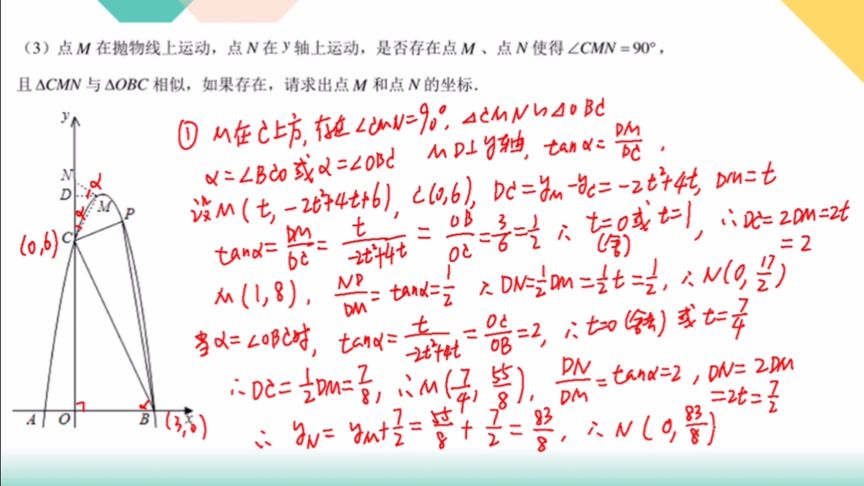 (3) 点 M 在抛物线上运动，点 N 在 y 轴上运动，是否存在点 M 、点 N 使得 ∠CMN = 90°，
且 ΔCMN 与 ΔOBC 相似，如果存在，请求出点 M 和点 N 的坐标.
① M在C上方, 存在∠CMN=90°, △CMN∽△OBC
α=∠BCO 或 α=∠OBC MD⊥y轴, tanα=DM/DC,
设M(t, -2t²+4t+6), C(0,6), DC=yM-yC=-2t²+4t, DM=t
tanα=DM/DC=t/(-2t²+4t)=OB/OC=3/6=1/2 ∴ t=0(舍)或 t=1, ∴DC=2DM=2t
=2
M(1,8), ND/DM=tanα=1/2 ∴DN=1/2DM=1/2t=1/2, ∴N(0,17/2)
当α=∠OBC时, tanα=t/(-2t²+4t)=OC/OB=2, ∴t=0(舍去)或t=7/4
∴DC=1/2DM=7/8, ∴M(7/4, 55/8), DN/DM=tanα=2, DN=2DM
=2t=7/2
∴yN=yM+7/2=55/8+7/2=83/8, ∴N(0,83/8)
y
N
D
α
M
P
α
(0,6)
C
A
O
B
x
(3,0)